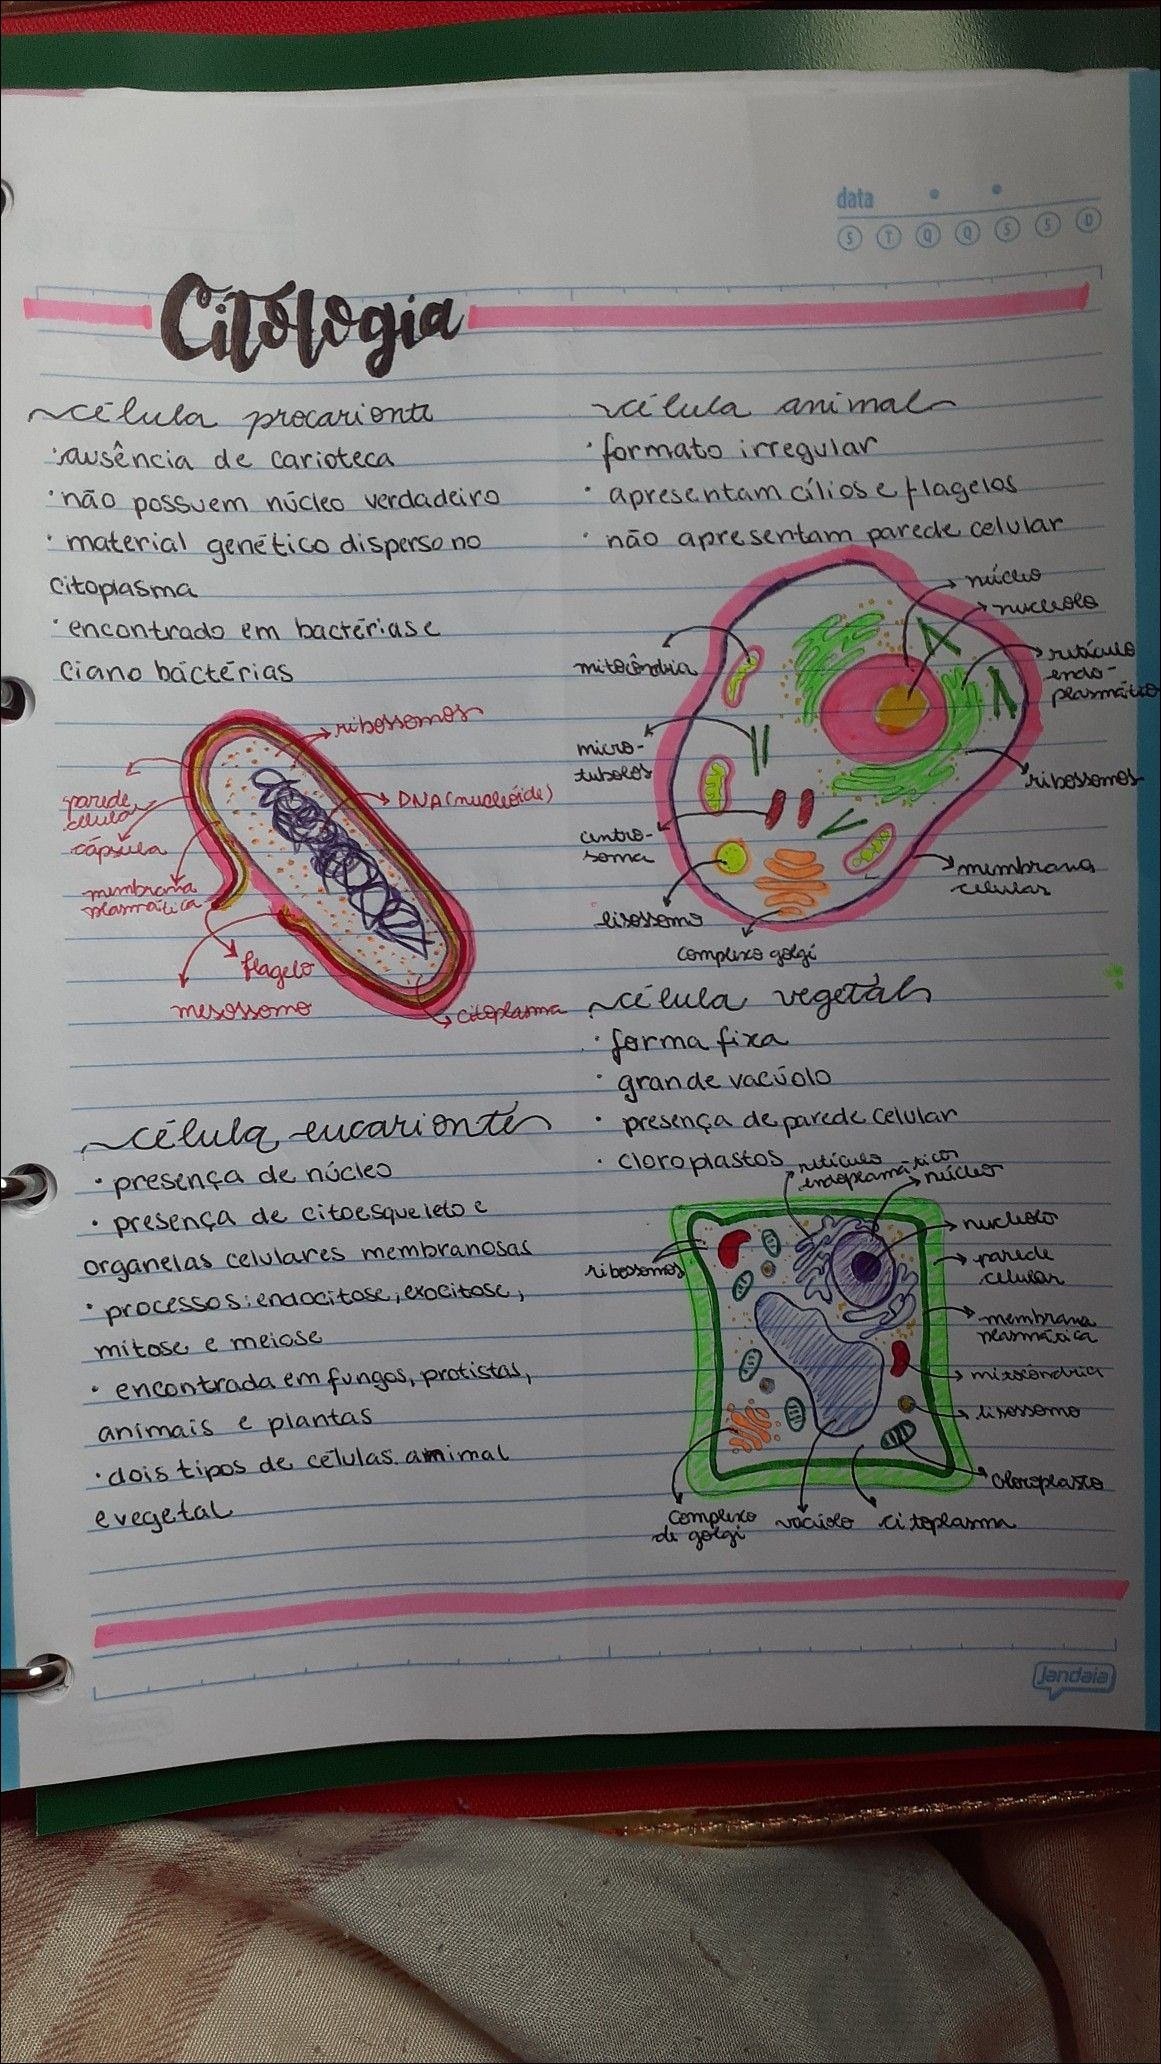 data
S T Q Q S S D
Citologia
célula procarionte
·ausência de carioteca
·não possuem núcleo verdadeiro
·material genético disperso no
citoplasma
·encontrado em bactérias e
ciano bactérias
ribossomos
parede
celular
DNA (nucleóide)
cápsula
membrana
plasmática
flagelo
mesossomo
citoplasma
célula eucarionte
·presença de núcleo
·presença de citoesqueleto e
organelas celulares membranosas
·processos: endocitose, exocitose,
mitose e meiose
·encontrada em fungos, protistas,
animais e plantas
·dois tipos de células. animal
e vegetal
célula animal
·formato irregular
·apresentam cílios e flagelos
·não apresentam parede celular
núcleo
nucleolo
mitocôndria
retículo
endo-
plasmático
micro-
tubolos
ribossomos
centro-
somo
membrana
celular
lisossomo
complexo golgi
célula vegetal
·forma fixa
·grande vacúolo
·presença de parede celular
·cloroplastos
retículo
endoplasmático
núcleo
nucleolo
ribossomos
parede
celular
membrana
plasmática
mitocôndria
lisossomo
cloroplasto
complexo
de golgi
vacúolo
citoplasma
Jandaia